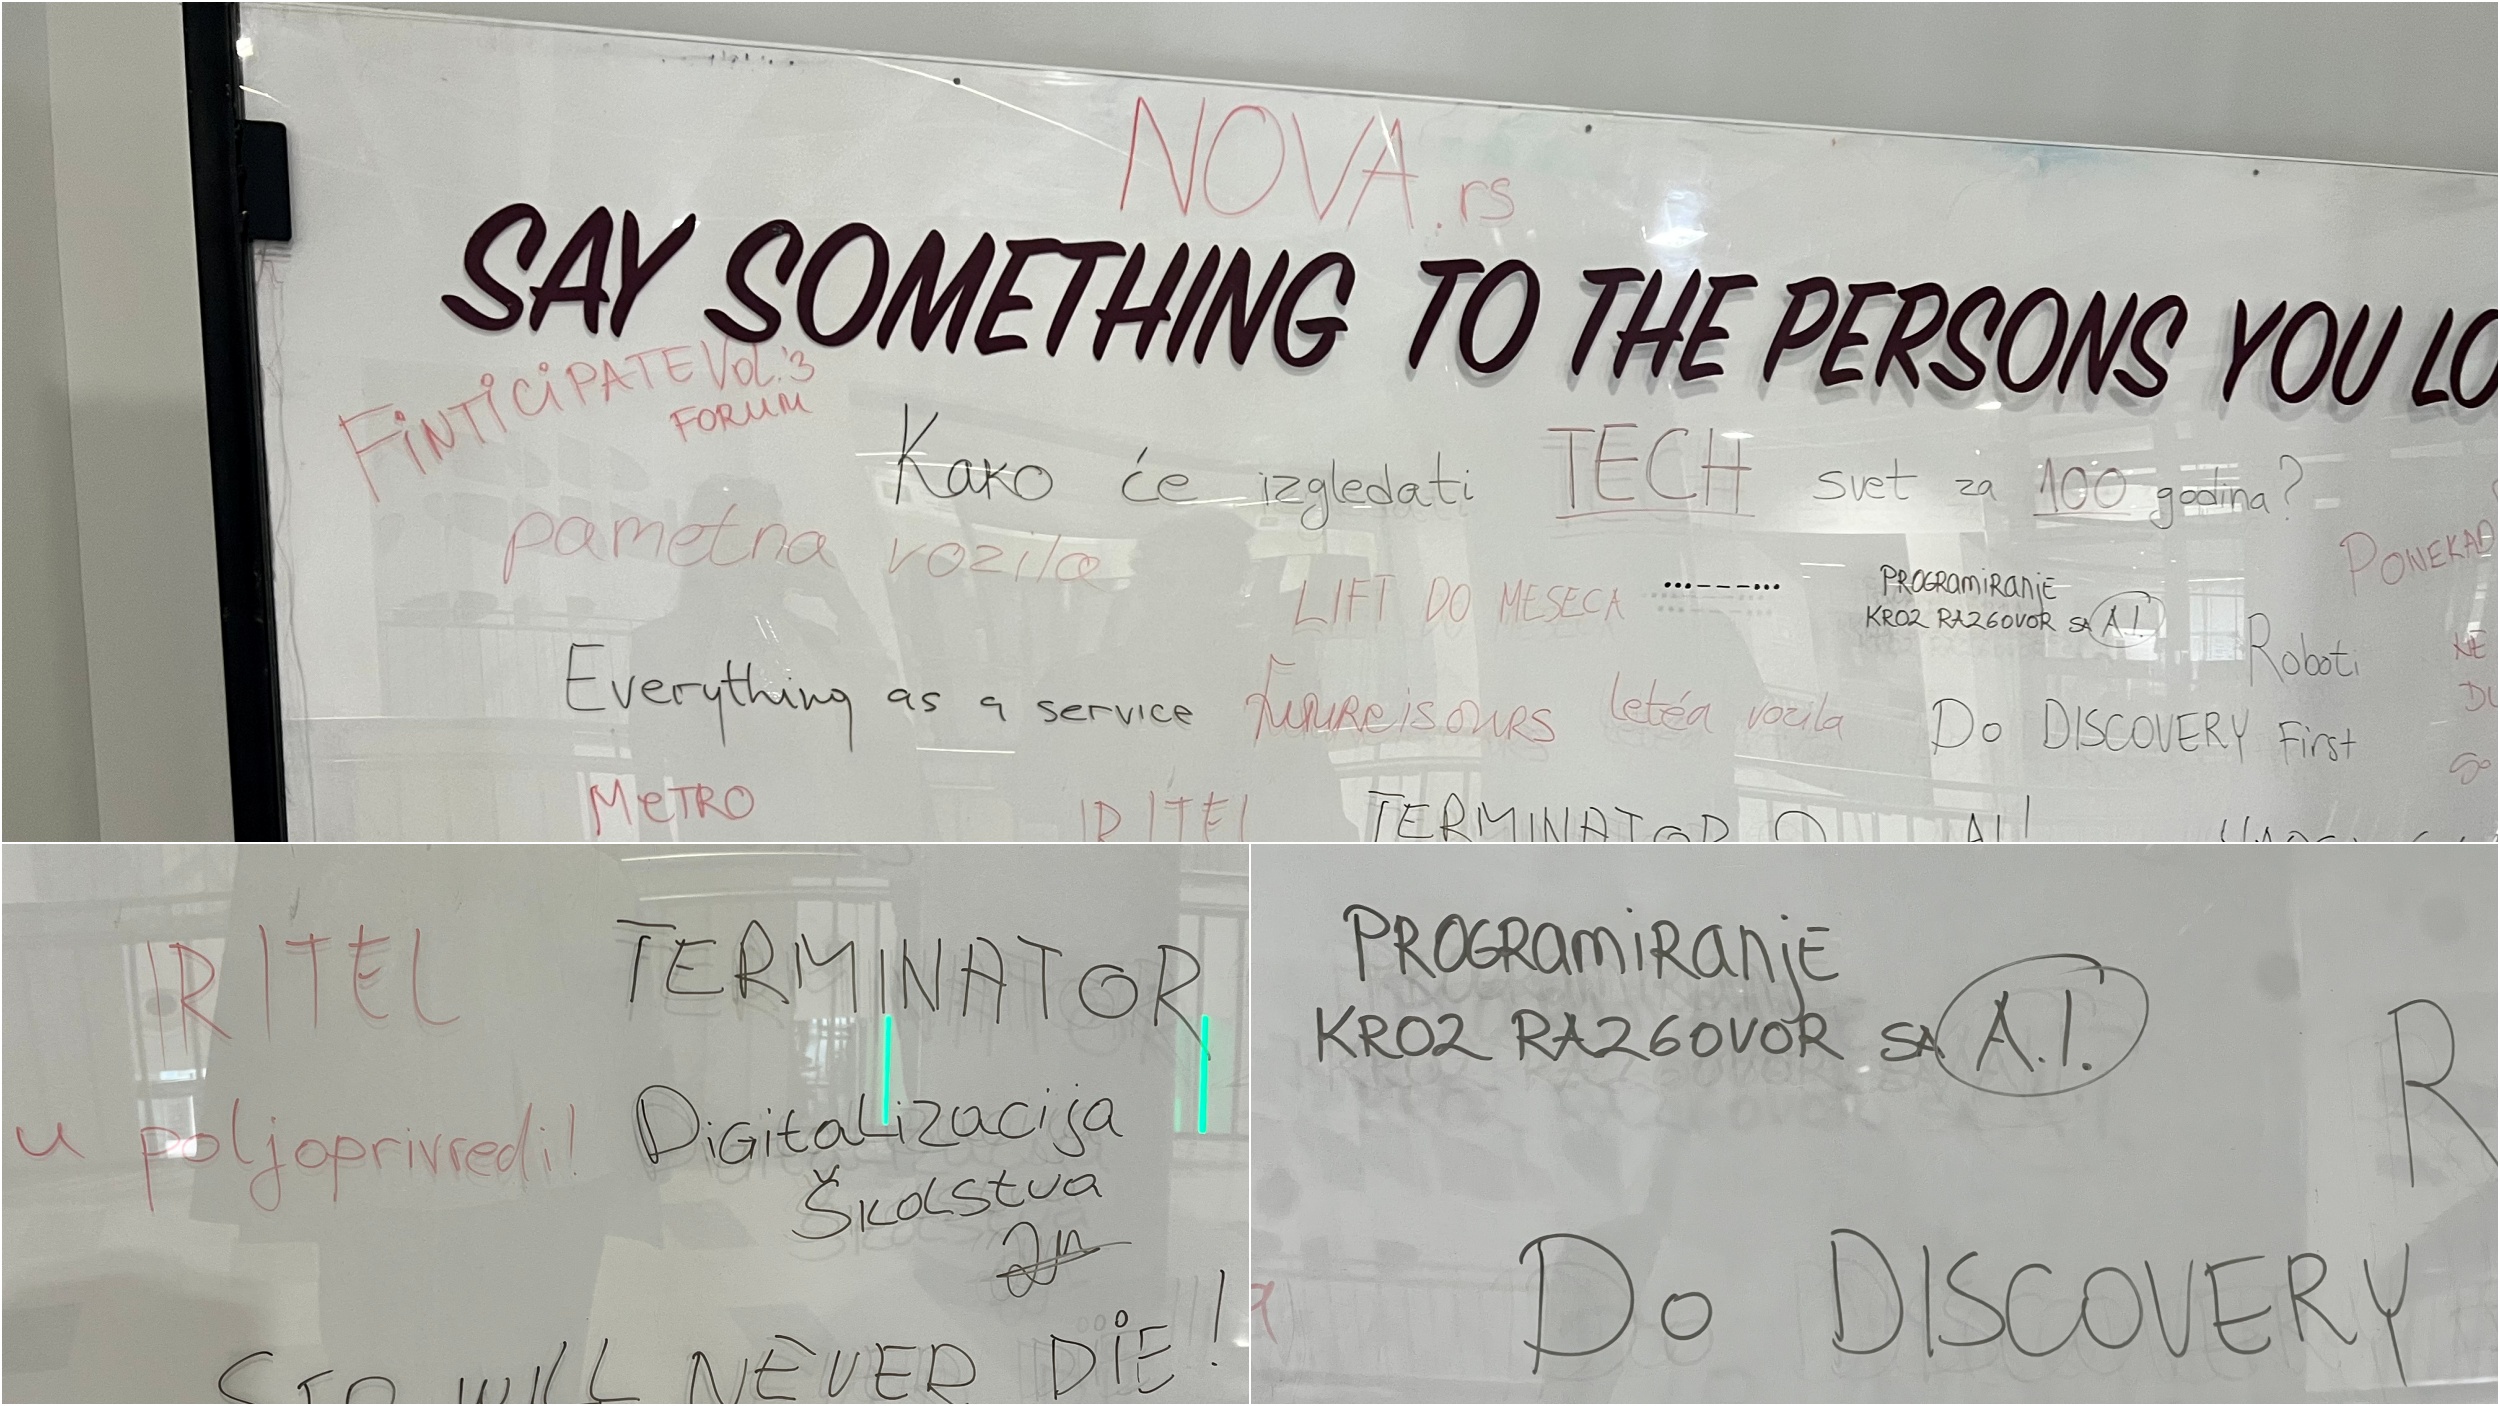 NOVA.rs
SAY SOMETHING TO THE PERSONS YOU LO
FINTICIPATE VOL.'3
FORUM
Kako će izgledati TECH svet za 100 godina?
pametna vozila
LIFT DO MESECA
PROGRAMIRANJE
KROZ RAZGOVOR SA A.I.
PONEKAD
Roboti
NE
Everything as a service
Future is ours
leteća vozila
Do DISCOVERY First
DU
METRO
IRITEL
TERMINATOR
IRITEL
TERMINATOR
u poljoprivredi!
Digitalizacija
Školstva
WILL NEVER DIE!
PROGRAMIRANJE
KROZ RAZGOVOR SA A.I.
R
Do DISCOVERY